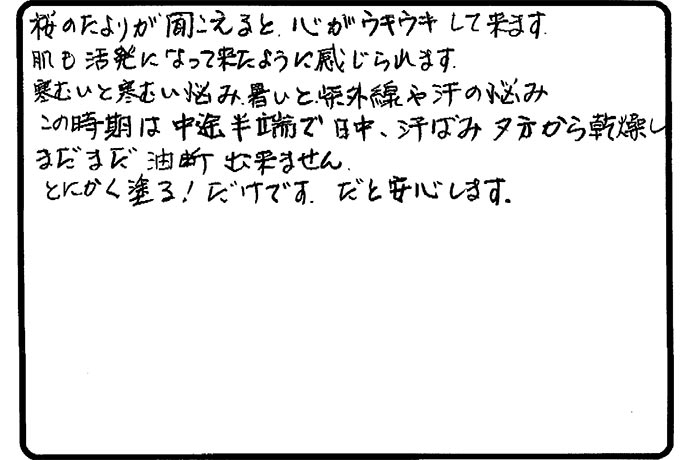 桜のたよりが聞こえると、心がウキウキして来ます。
肌も活発になって来たように感じられます。
寒むいと寒むい悩み、暑いと、紫外線や汗の悩み
この時期は中途半端で日中、汗ばみ夕方から乾燥し
まだまだ油断出来ません。
とにかく塗る!だけです。だと安心します。